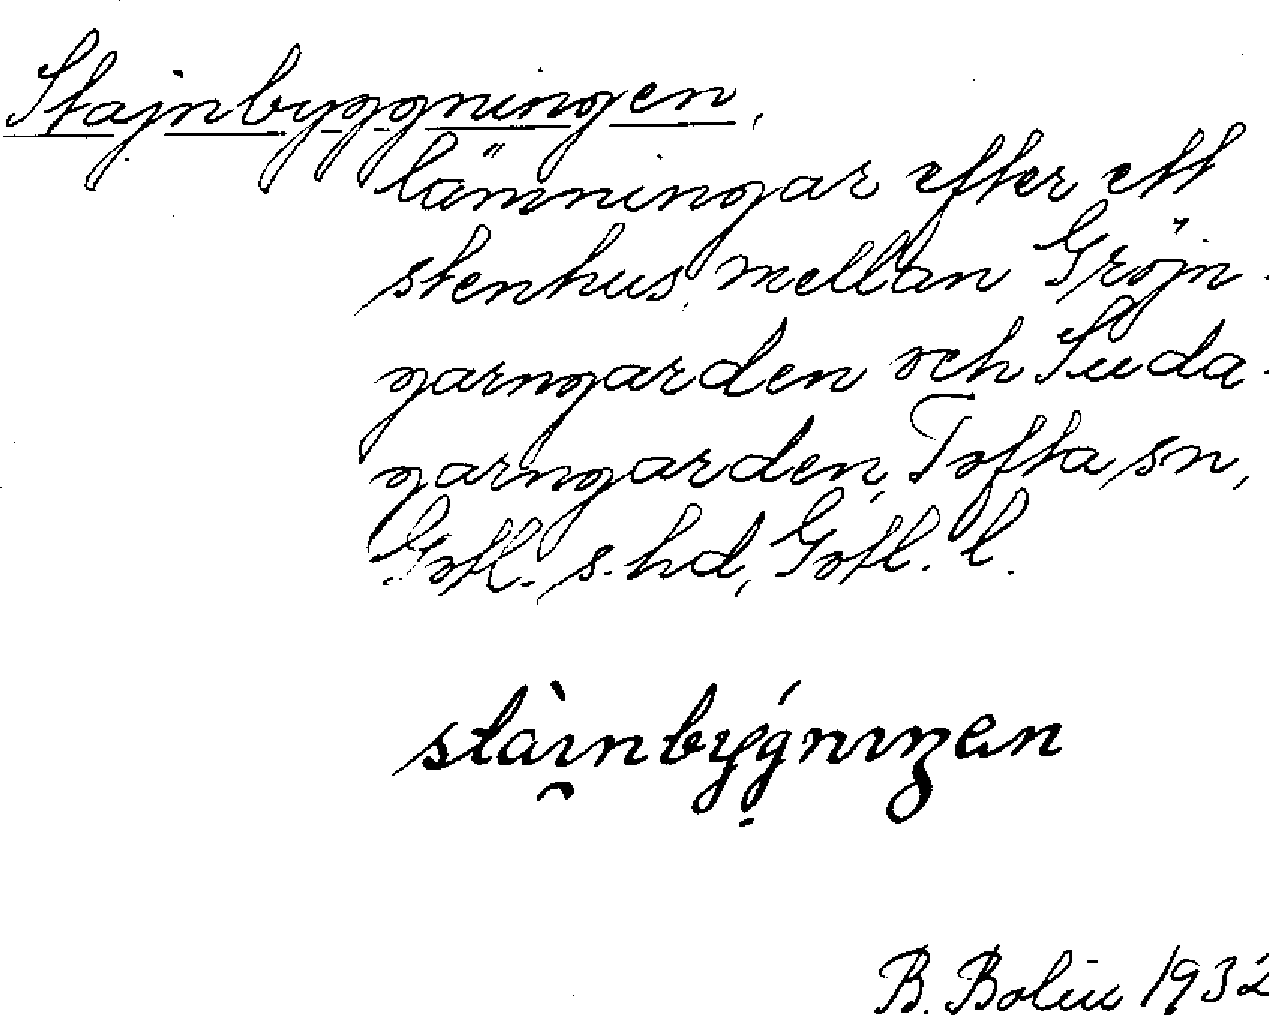 Stajnbyggningen,
lämningar efter ett
stenhus, mellan Gröjn-
garngarden och Suda-
garngarden, Tofta sn,
Gotl. s. hd, Gotl. l.
B. Bolin 1932